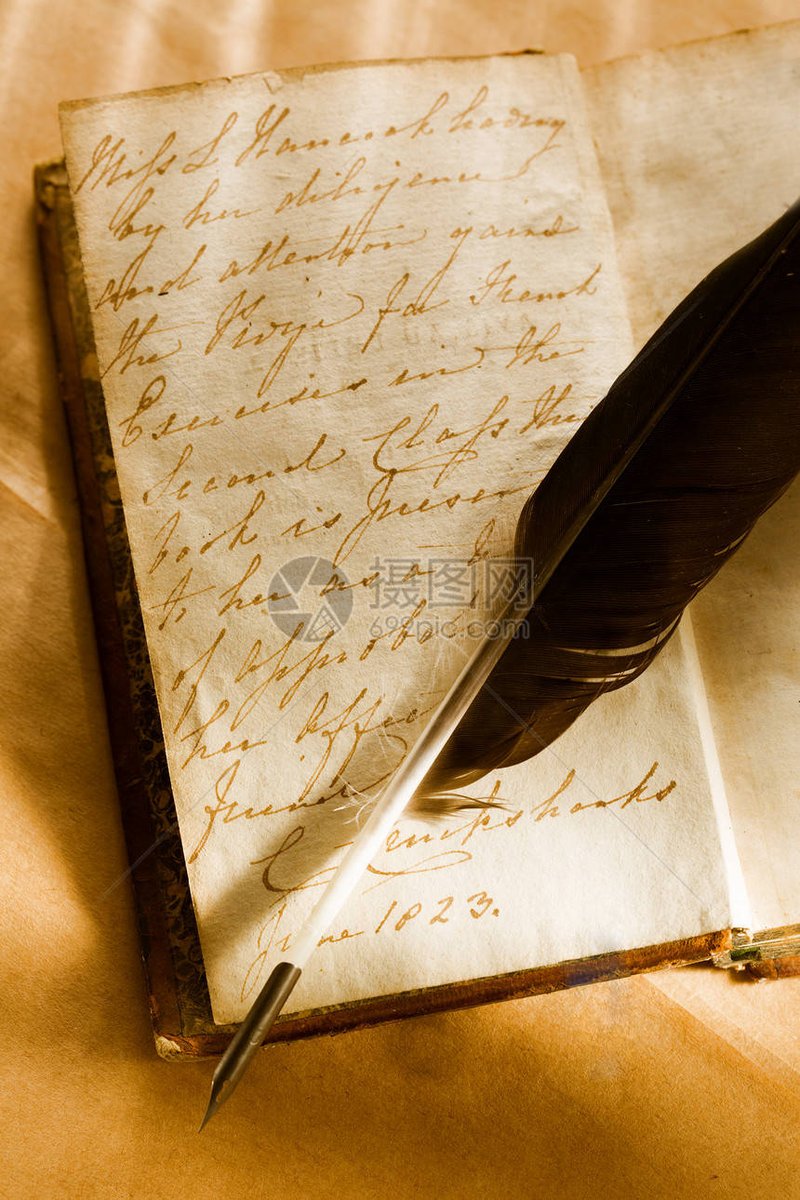 Miss L Hancock having
by her diligence
and attention gains
the Prize for French
Exercises in the
Second Class this
book is presen
to her as a
of approba
her affec
friend
C Cruikshanks
June 1823.
摄图网
699pic.com